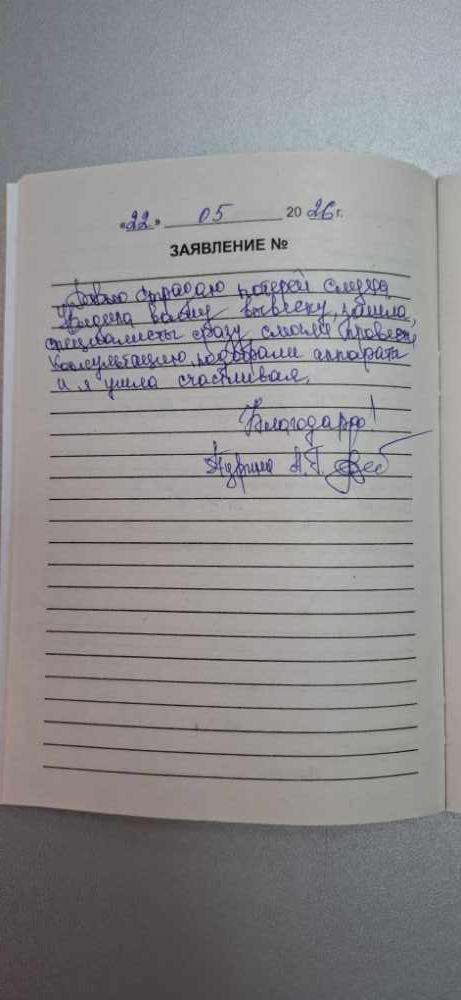 «22» 05 2026 г.
ЗАЯВЛЕНИЕ №
Давно страдаю потерей слуха
Видела вашу вывеску, зашла,
специалисты сразу смогли провести
консультацию, подобрали аппараты
и я ушла счастливая.
Благодарю!
А.Г.